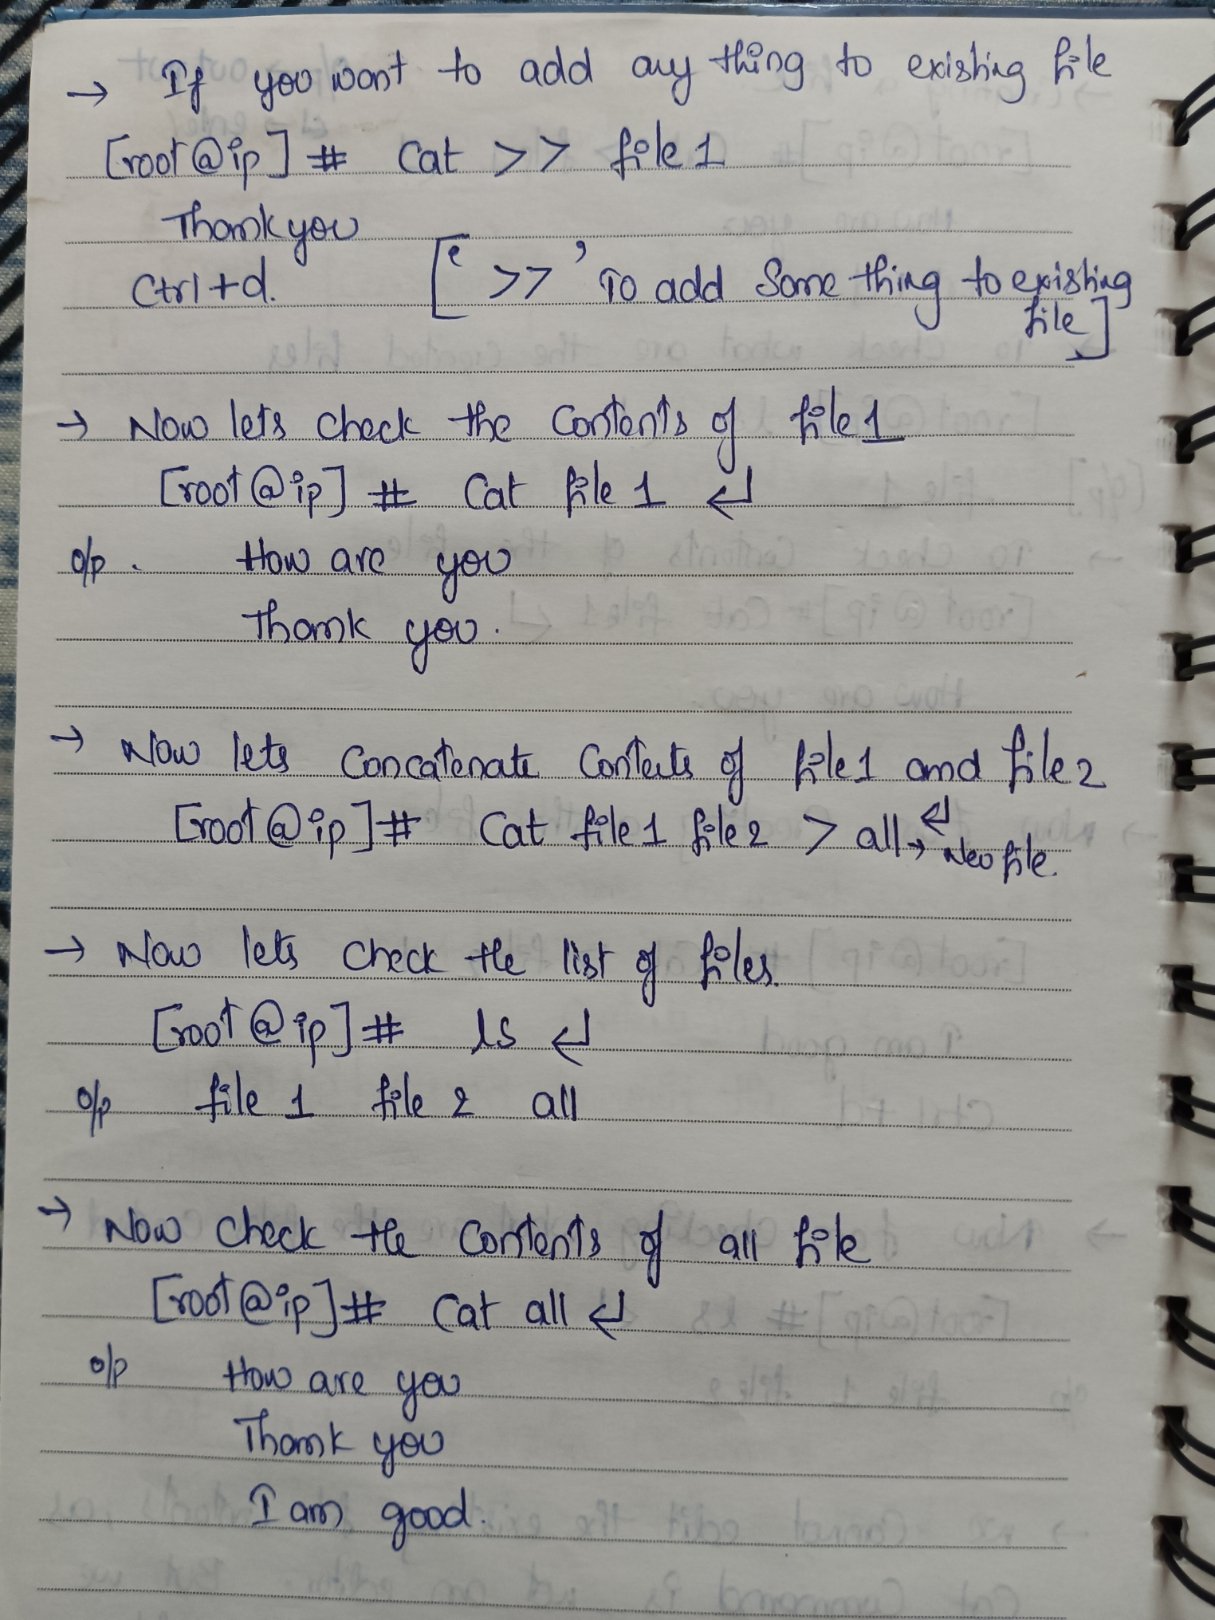 → If you want to add any thing to existing file
[root@ip] # Cat >> file 1
Thank you
Ctrl+d. [' >> ' To add Some thing to existing
file]
→ Now lets check the Contents of file 1
[root@ip] # Cat file 1 ↵
o/p. How are you
Thank you.
→ Now lets Concatenate Contents of file1 and file2
[root@ip]# Cat file 1 file 2 > all ↵
→ New file.
→ Now lets check the list of files.
[root@ip]# ls ↵
o/p file 1 file 2 all
→ Now check the Contents of all file
[root@ip]# Cat all ↵
o/p How are you
Thank you
I am good.